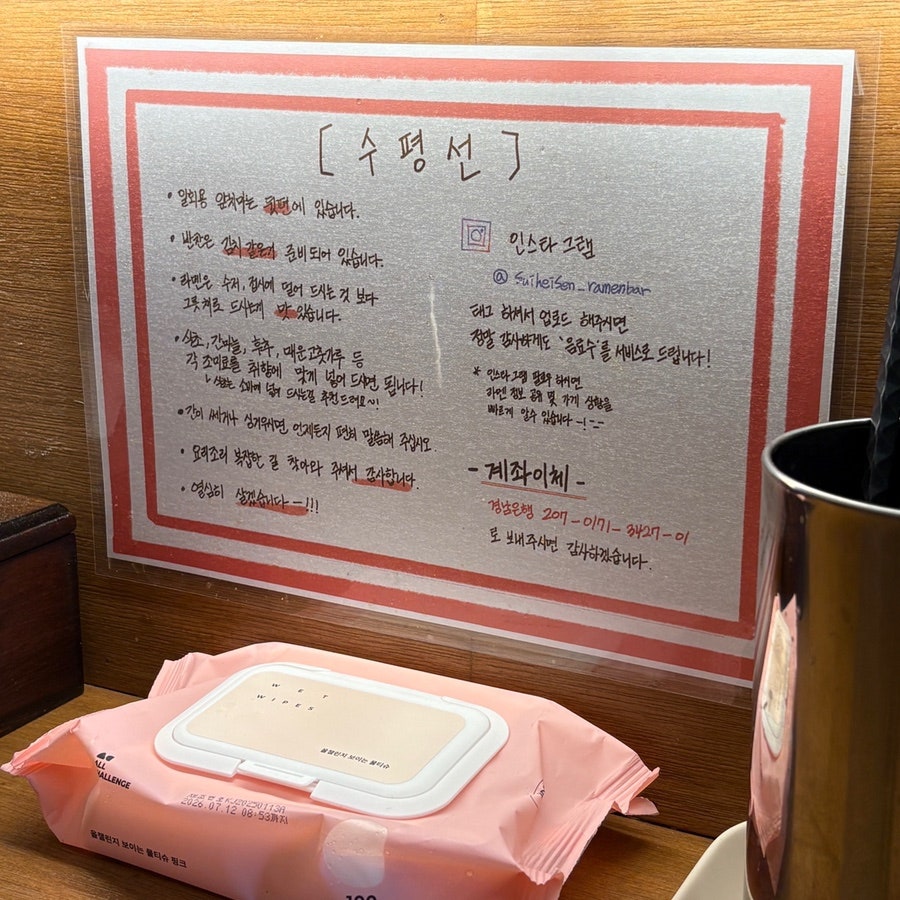 [수평선]
• 일회용 앞치마는 뒷편에 있습니다.
• 반찬은 김치 같은거 준비되어 있습니다.
• 라멘은 수저, 접시에 덜어 드시는 것 보다
그릇째로 드시는게 맛 있습니다.
• 식초, 간마늘, 후추, 매운고춧가루 등
각 조미료를 취향에 맞게 넣어 드시면 됩니다!
ㄴ 식초는 소바에 넣어 드시는걸 추천드려요~!
• 간이 쎄거나 싱거우시면 언제든지 편히 말씀해 주십시오.
• 요리조리 복잡한 길 찾아와 주셔서 감사합니다.
• 열심히 살겠습니다 —!!!
인스타그램
@ suiheisen_ramenbar
태그 하셔서 업로드 해주시면
정말 감사하게도 '음료수'를 서비스로 드립니다!
* 인스타그램 팔로우 하시면
라멘 정보 공유 및 가게 상황을
빠르게 알수 있습니다 -!
- 계좌이체 -
경남은행 207-0171-3427-01
로 보내주시면 감사하겠습니다.
WET
WIPES
올챌린지 보이는 물티슈
ALL
CHALLENGE
2026.07.12 08:53까지
올챌린지 보이는 물티슈 핑크
100